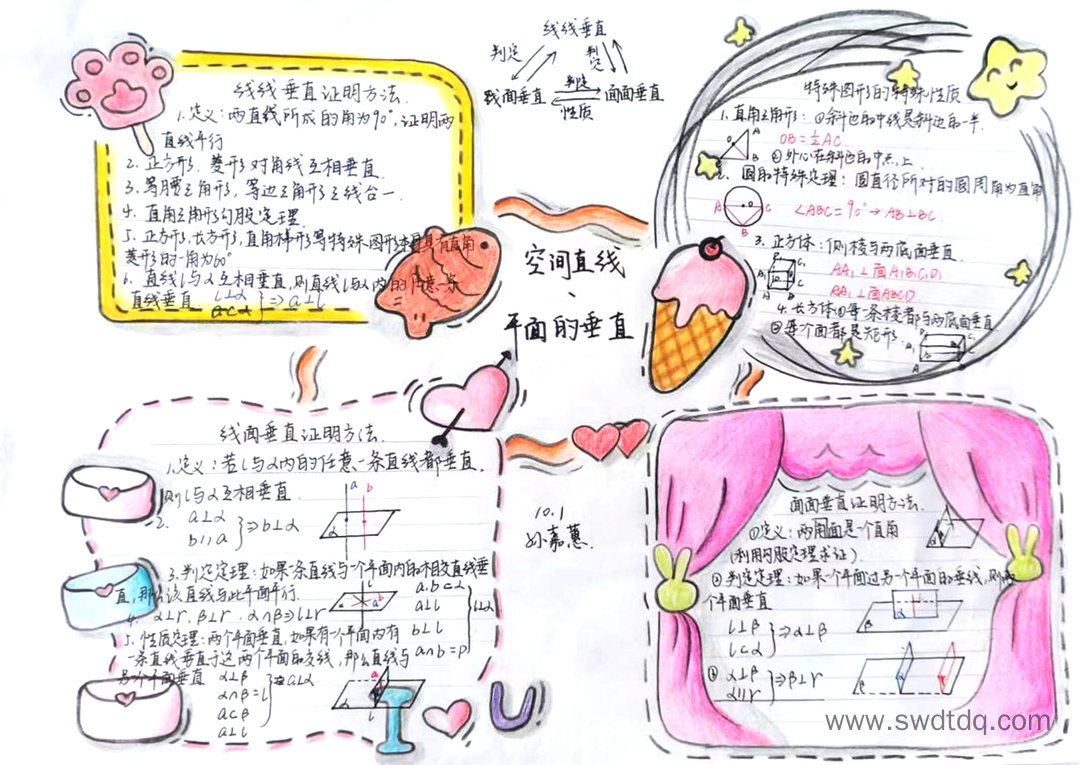 线线垂直
判定
判定
线面垂直
判定
性质
面面垂直
线线垂直证明方法.
1.定义:两直线所成的角为90°,证明两
直线平行
2. 正方形、菱形对角线互相垂直.
3. 等腰三角形,等边三角形三线合一.
4. 直角三角形勾股定理.
5. 正方形,长方形,直角梯形等特殊图形本身具有直角
菱形的一角为60°
6. 直线l与α互相垂直,则直线l与α内的任意一条
直线垂直. l⊥α
a⊂α }⇒a⊥l
特殊图形的特殊性质
1. 直角三角形:①斜边的中线是斜边的一半.
OB=½AC
②外心在斜边的中点上.
2. 圆的特殊定理:圆直径所对的圆周角为直角
∠ABC=90°→AB⊥BC.
3. 正方体:侧棱与两底面垂直
AA₁⊥面A₁B₁C₁D₁
AA₁⊥面ABCD
4. 长方体①每一条棱都与两底面垂直
②每个面都是矩形.
空间直线、
平面的垂直
10.1
孙嘉蕙.
线面垂直证明方法.
1.定义:若l与α内的任意一条直线都垂直,
则l与α互相垂直.
2. a⊥α
b∥a }⇒b⊥α
3.判定定理:如果一条直线与一个平面内的相交直线垂
直,那么该直线与此平面平行.
a,b⊂α
a⊥l
b⊥l
a∩b=p
}l⊥α
4. α⊥r,β⊥r,α∩β=l⇒l⊥r
5. 性质定理:两个平面垂直,如果有一个平面内有
一条直线垂直于这两个平面的交线,那么直线与
另个平面垂直
α⊥β
α∩β=l
a⊂β
a⊥l
}⇒a⊥α
面面垂直证明方法.
①定义:两角面是一个直角
(利用勾股定理求证)
②判定定理:如果一个平面过另一个平面的垂线,则两
个平面垂直
l⊥β
l⊂α }⇒α⊥β
α⊥β
α∥r }⇒β⊥r
www.swdtdq.com